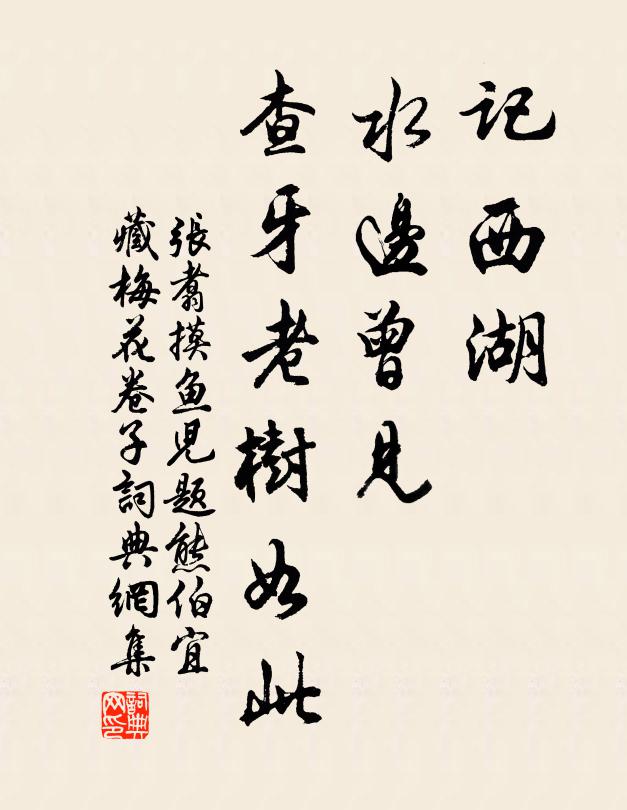 記西湖
水邊曾見
查牙老樹如此
張翥摸魚児題熊伯宜
藏梅花卷子詞典網集
詞典
网印